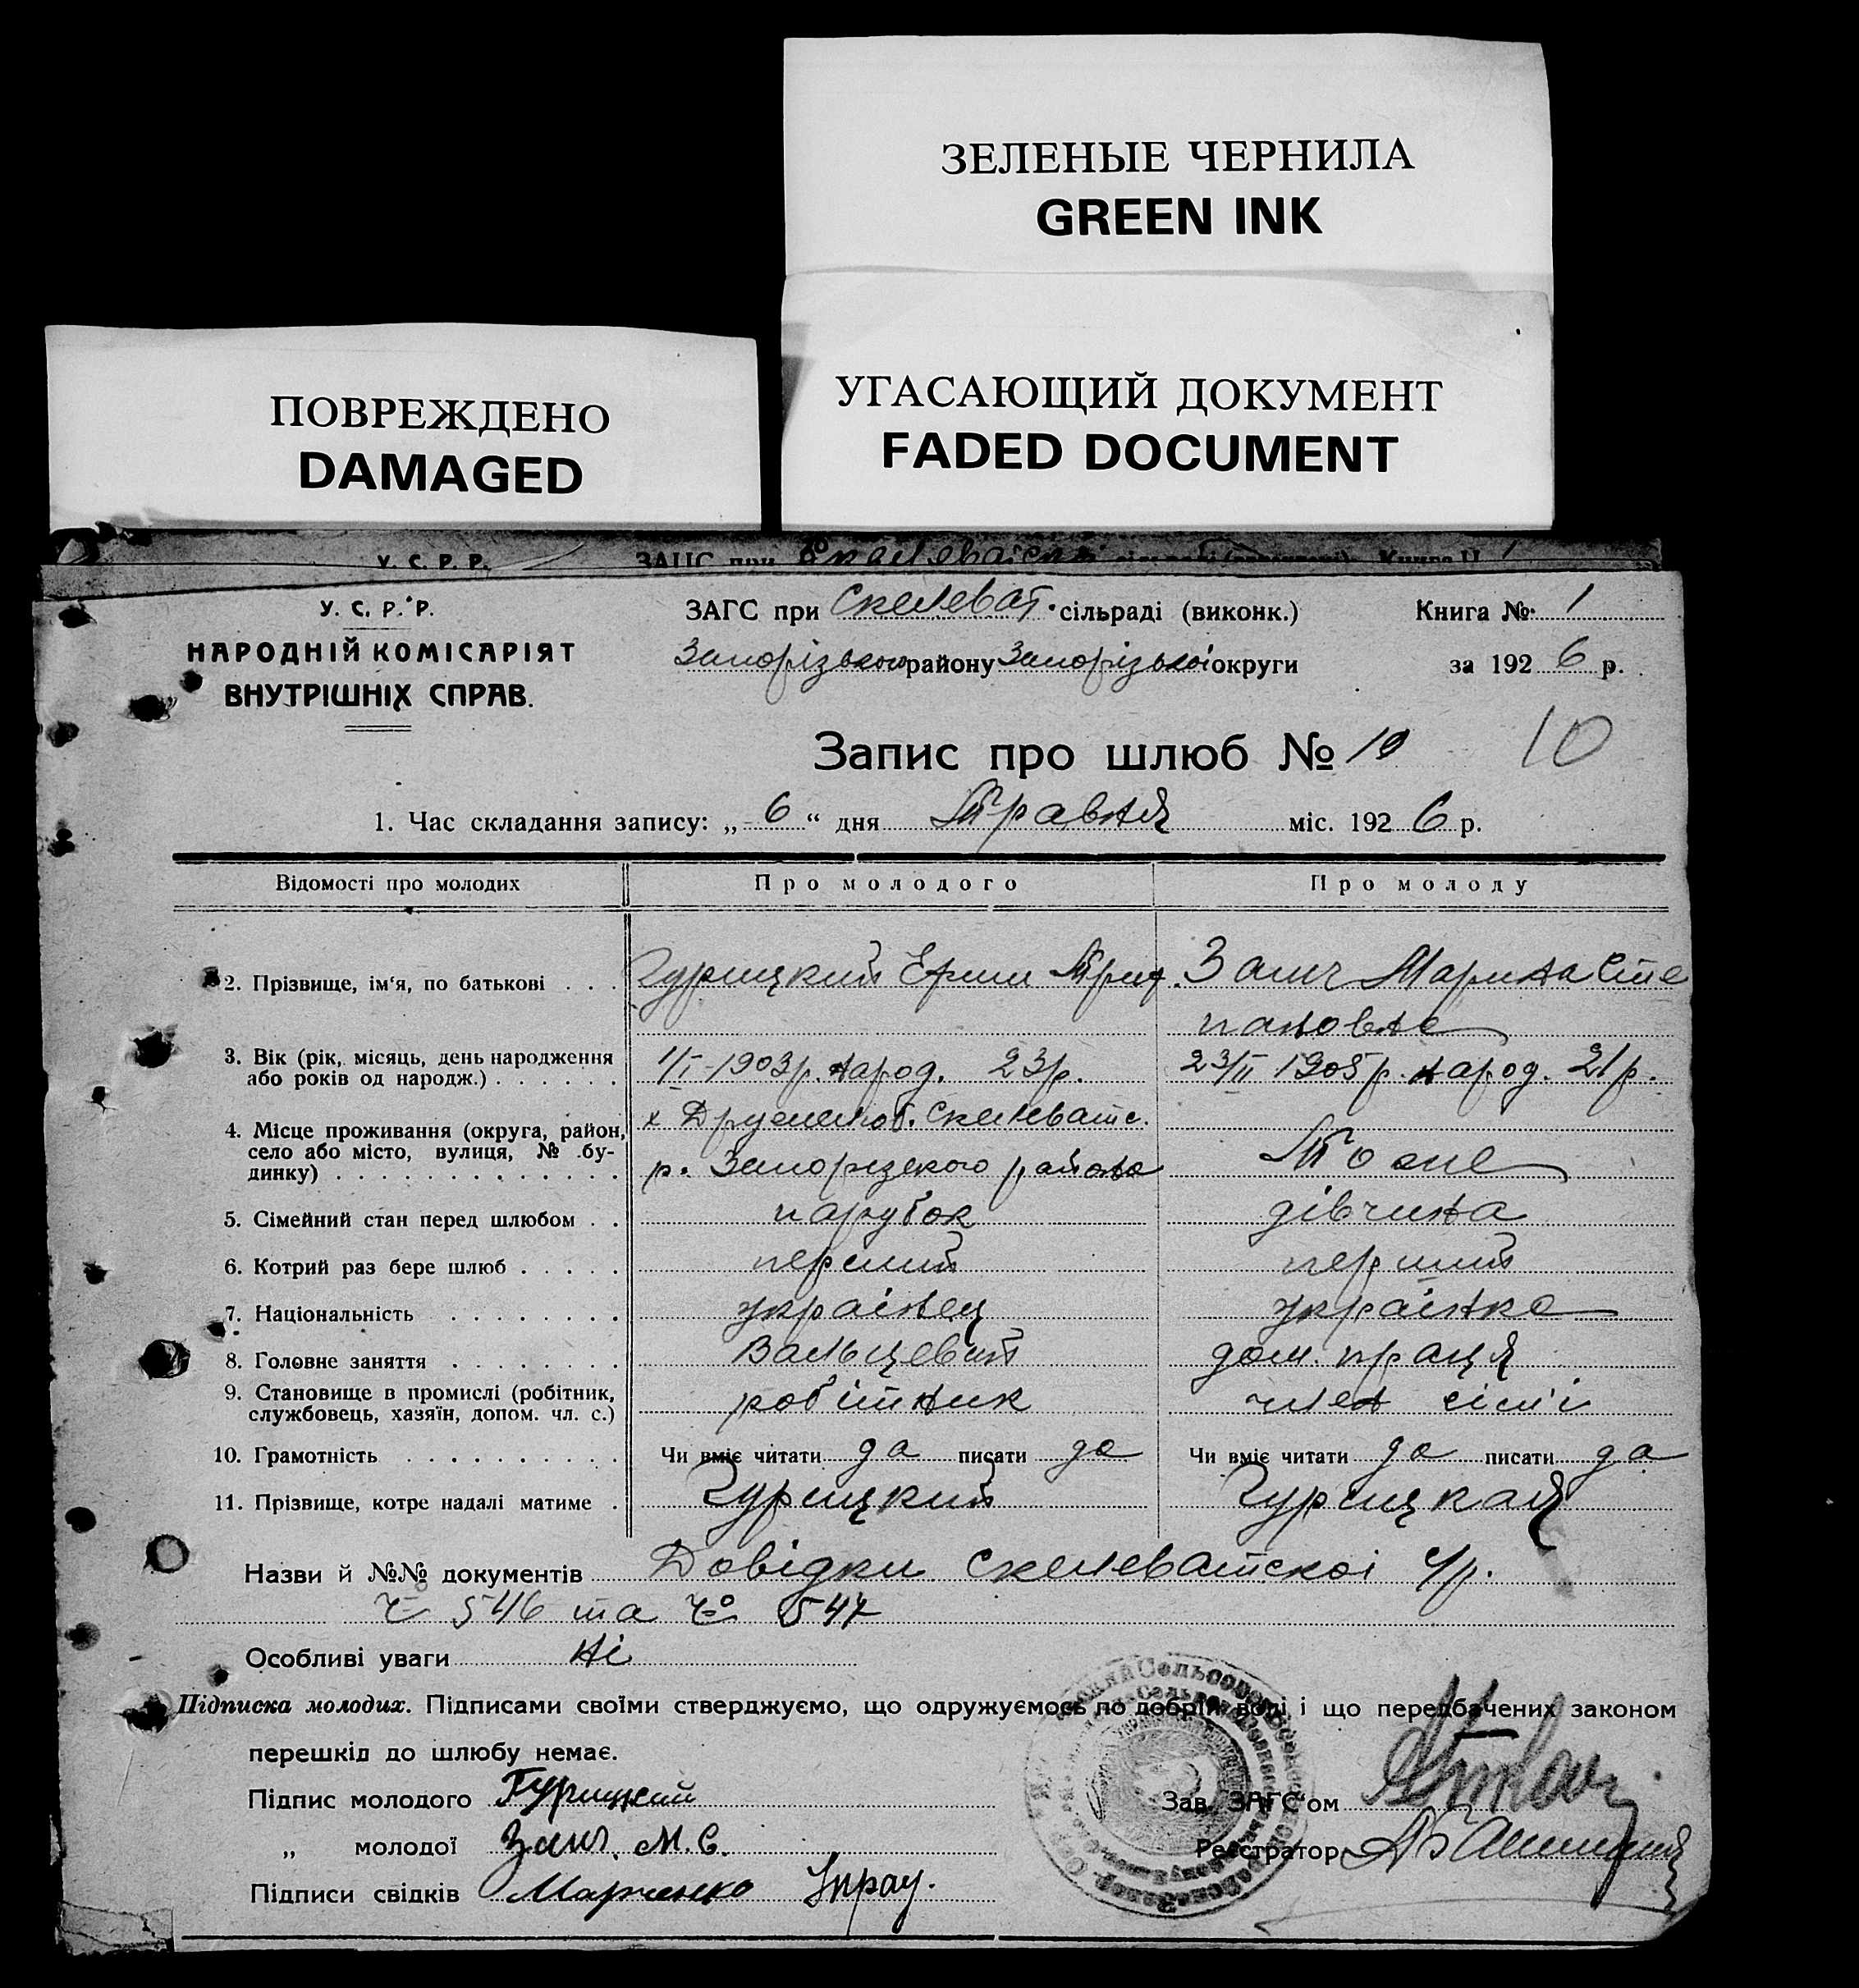 ЗЕЛЕНЫЕ ЧЕРНИЛА
GREEN INK
УГАСАЮЩИЙ ДОКУМЕНТ
FADED DOCUMENT
ПОВРЕЖДЕНО
DAMAGED
У. С. Р. Р.
У. С. Р. Р.
НАРОДНІЙ КОМІСАРІЯТ
ВНУТРІШНІХ СПРАВ.
ЗАГС при Скелеват. сільраді (виконк.)
Запорізького району Запорізькоі округи
Книга № 1
за 1926 р.
Запис про шлюб № 10
10
1. Час складання запису: „6“ дня Травня міс. 1926 р.
Відомості про молодих Про молодого Про молоду
2. Прізвище, ім'я, по батькові . . . Гурицкий Марина Сте
пановна
3. Вік (рік, місяць, день народження 1/I-1903 р. народ. 23 р. 23/II 1905 р. народ. 21 р.
або років од народж.) . . . . . .
4. Місце проживання (округа, район, х. Скелеватс.
село або місто, вулиця, № бу- р. района Тоже
динку) . . . . . . . . . . . . .
5. Сімейний стан перед шлюбом . . парубок дівчина
6. Котрий раз бере шлюб . . . . . перший перший
7. Національність . . . . . . . . украінец украінка
8. Головне заняття . . . . . . . . Вальцевий дом. праця
9. Становище в промислі (робітник, робітник член сімі
службовець, хазяїн, допом. чл. с.)
10. Грамотність . . . . . . . . . . Чи вміє читати да писати да Чи вміє читати да писати да
11. Прізвище, котре надалі матиме . Гурицкий Гурицкая
Назви й №№ документів Довідки Скелеватскоі с/р.
№ 546 та № 547
Особливі уваги ні
Підписка молодих. Підписами своїми стверджуємо, що одружуємось по добрій волі і що передбачених законом
перешкід до шлюбу немає.
Підпис молодого Гурицкий
Зав. ЗАГС'ом
„ молодої М. С.
Реєстратор
Підписи свідків Марченко